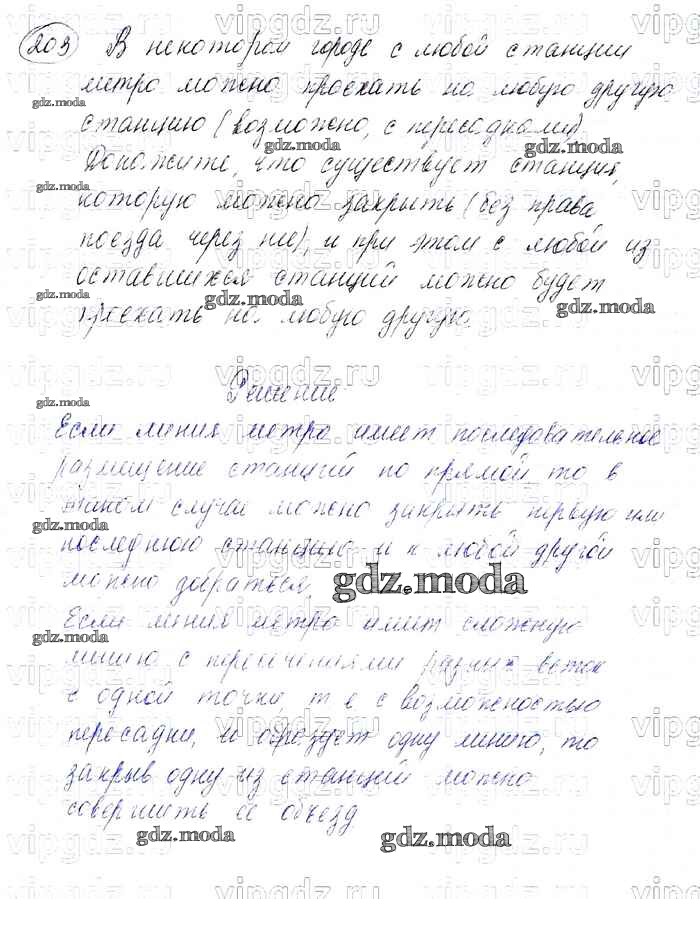 203 В некотором городе с любой станции
метро можно проехать на любую другую
станцию (возможно, с пересадками).
Докажите, что существует станция,
которую можно закрыть (без права
поезда через нее), и при этом с любой из
оставшихся станций можно будет
проехать на любую другую.
Решение
Если линия метро имеет последовательное
размещение станций по прямой то в
таком случае можно закрыть первую или
последнюю станцию и к любой другой
можно добраться.
Если линия метро имеет сложную
линию с пересечениями разных веток
с одной точки, т е с возможностью
пересадки, и образует одну линию, то
закрыв одну из станций можно
совершить ее объезд
gdz.moda
vipgdz.ru